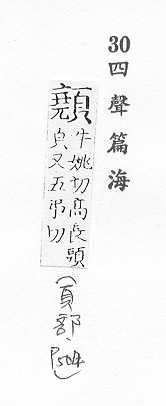 30四聲篇海
顤
牛姚切高長頭
皃又五弔切
(頁部、P504)